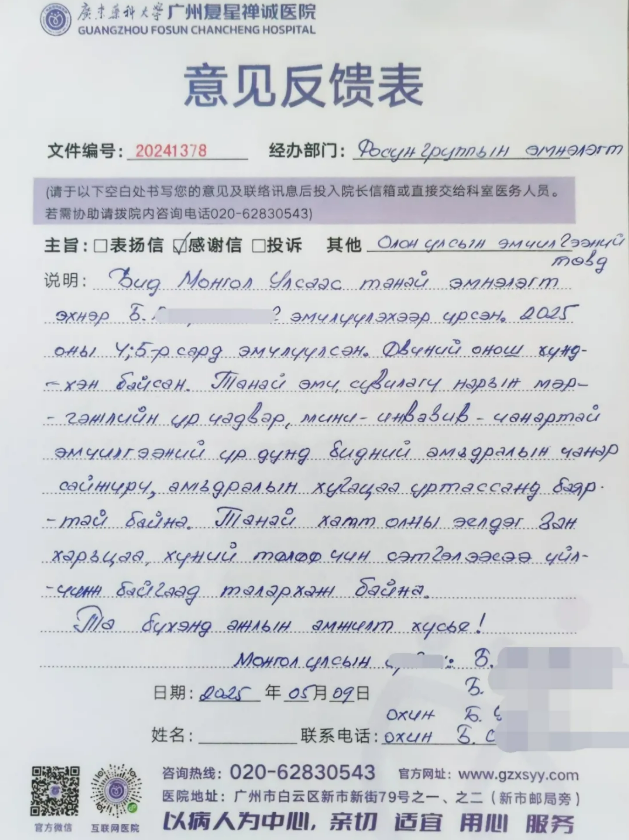 广东药科大学 广州复星禅诚医院
GUANGZHOU FOSUN CHANCHENG HOSPITAL
意见反馈表
文件编号: 20241378 经办部门: Фосун группын эмнэлэгт
(请于以下空白处书写您的意见及联络讯息后投入院长信箱或直接交给科室医务人员。
若需协助请拨院内咨询电话020-62830543)
主旨: □表扬信 ☑感谢信 □投诉 其他 Олон улсын эмчилгээний
төвд
说明: Бид Монгол Улсаас танай эмнэлэгт
эхнэр Б. эмчлүүлэхээр ирсэн. 2025
оны 4;5-р сард эмчлүүлсэн. Өвчний онош хүнд-
-хэн байсан. Танай эмч, сувилагч нарын мэр-
-гэжлийн ур чадвар, мини-инвазив-чанартай
эмчилгээний үр дүнд бидний амьдралын чанар
сайжирч, амьдралын хугацаа уртассанд баяр-
-тай байна. Танай хамт олны эелдэг зан
харьцаа, хүний төлөө чин сэтгэлээсээ үйл-
-чилж байгаад талархаж байна.
Та бүхэнд ажлын амжилт хүсье!
Монгол улсын Б.
日期: 2025 年 05 月 09 日 Б.
охин Б.
姓名: 联系电话: охин Б. С
咨询热线: 020-62830543 官方网址: www.gzxsyy.com
医院地址: 广州市白云区新市新街79号之一、之二 (新市邮局旁)
官方微信 互联网医院 以病人为中心, 亲切 适宜 用心 服务